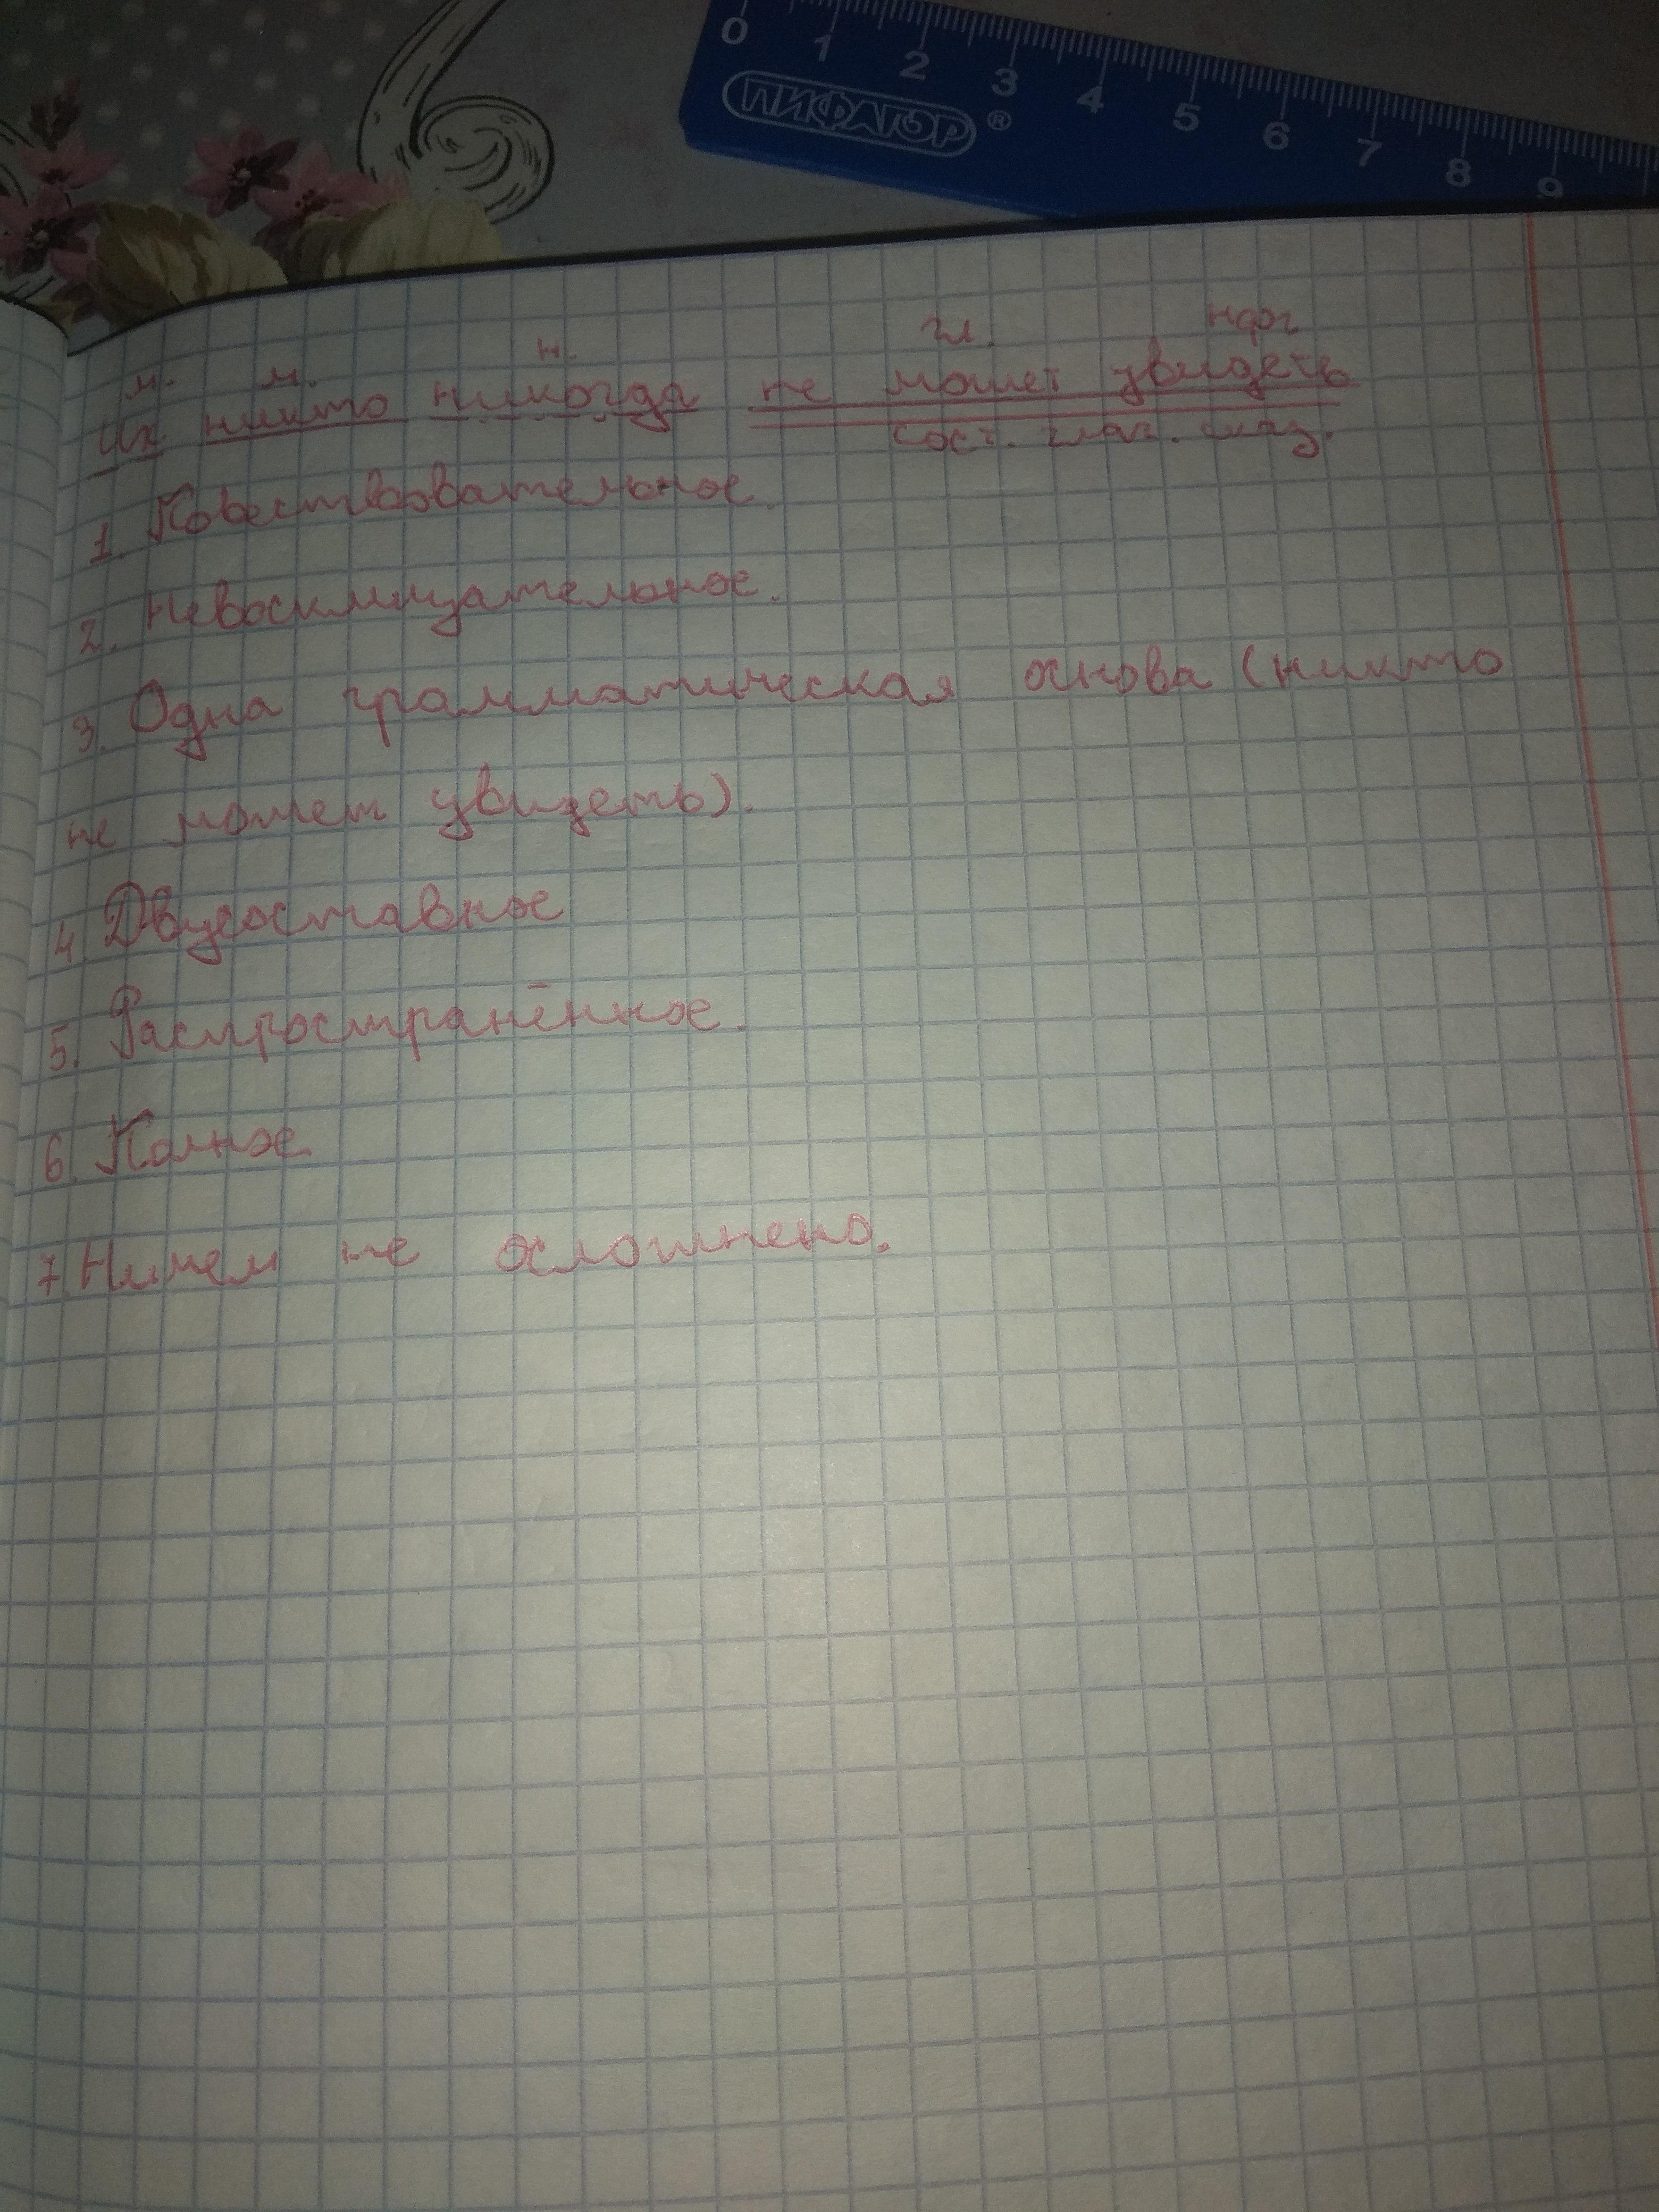 0 1 2 3 4 5 6 7 8 9
ПИФАГОР®
м. м. н. гл. нфг
Их никто никогда не может увидеть
сост. глаг. сказ.
1. Повествовательное.
2. Невосклицательное.
3. Одна грамматическая основа (никто
не может увидеть).
4. Двусоставное
5. Распространённое.
6. Полное.
7. Ничем не осложнено.